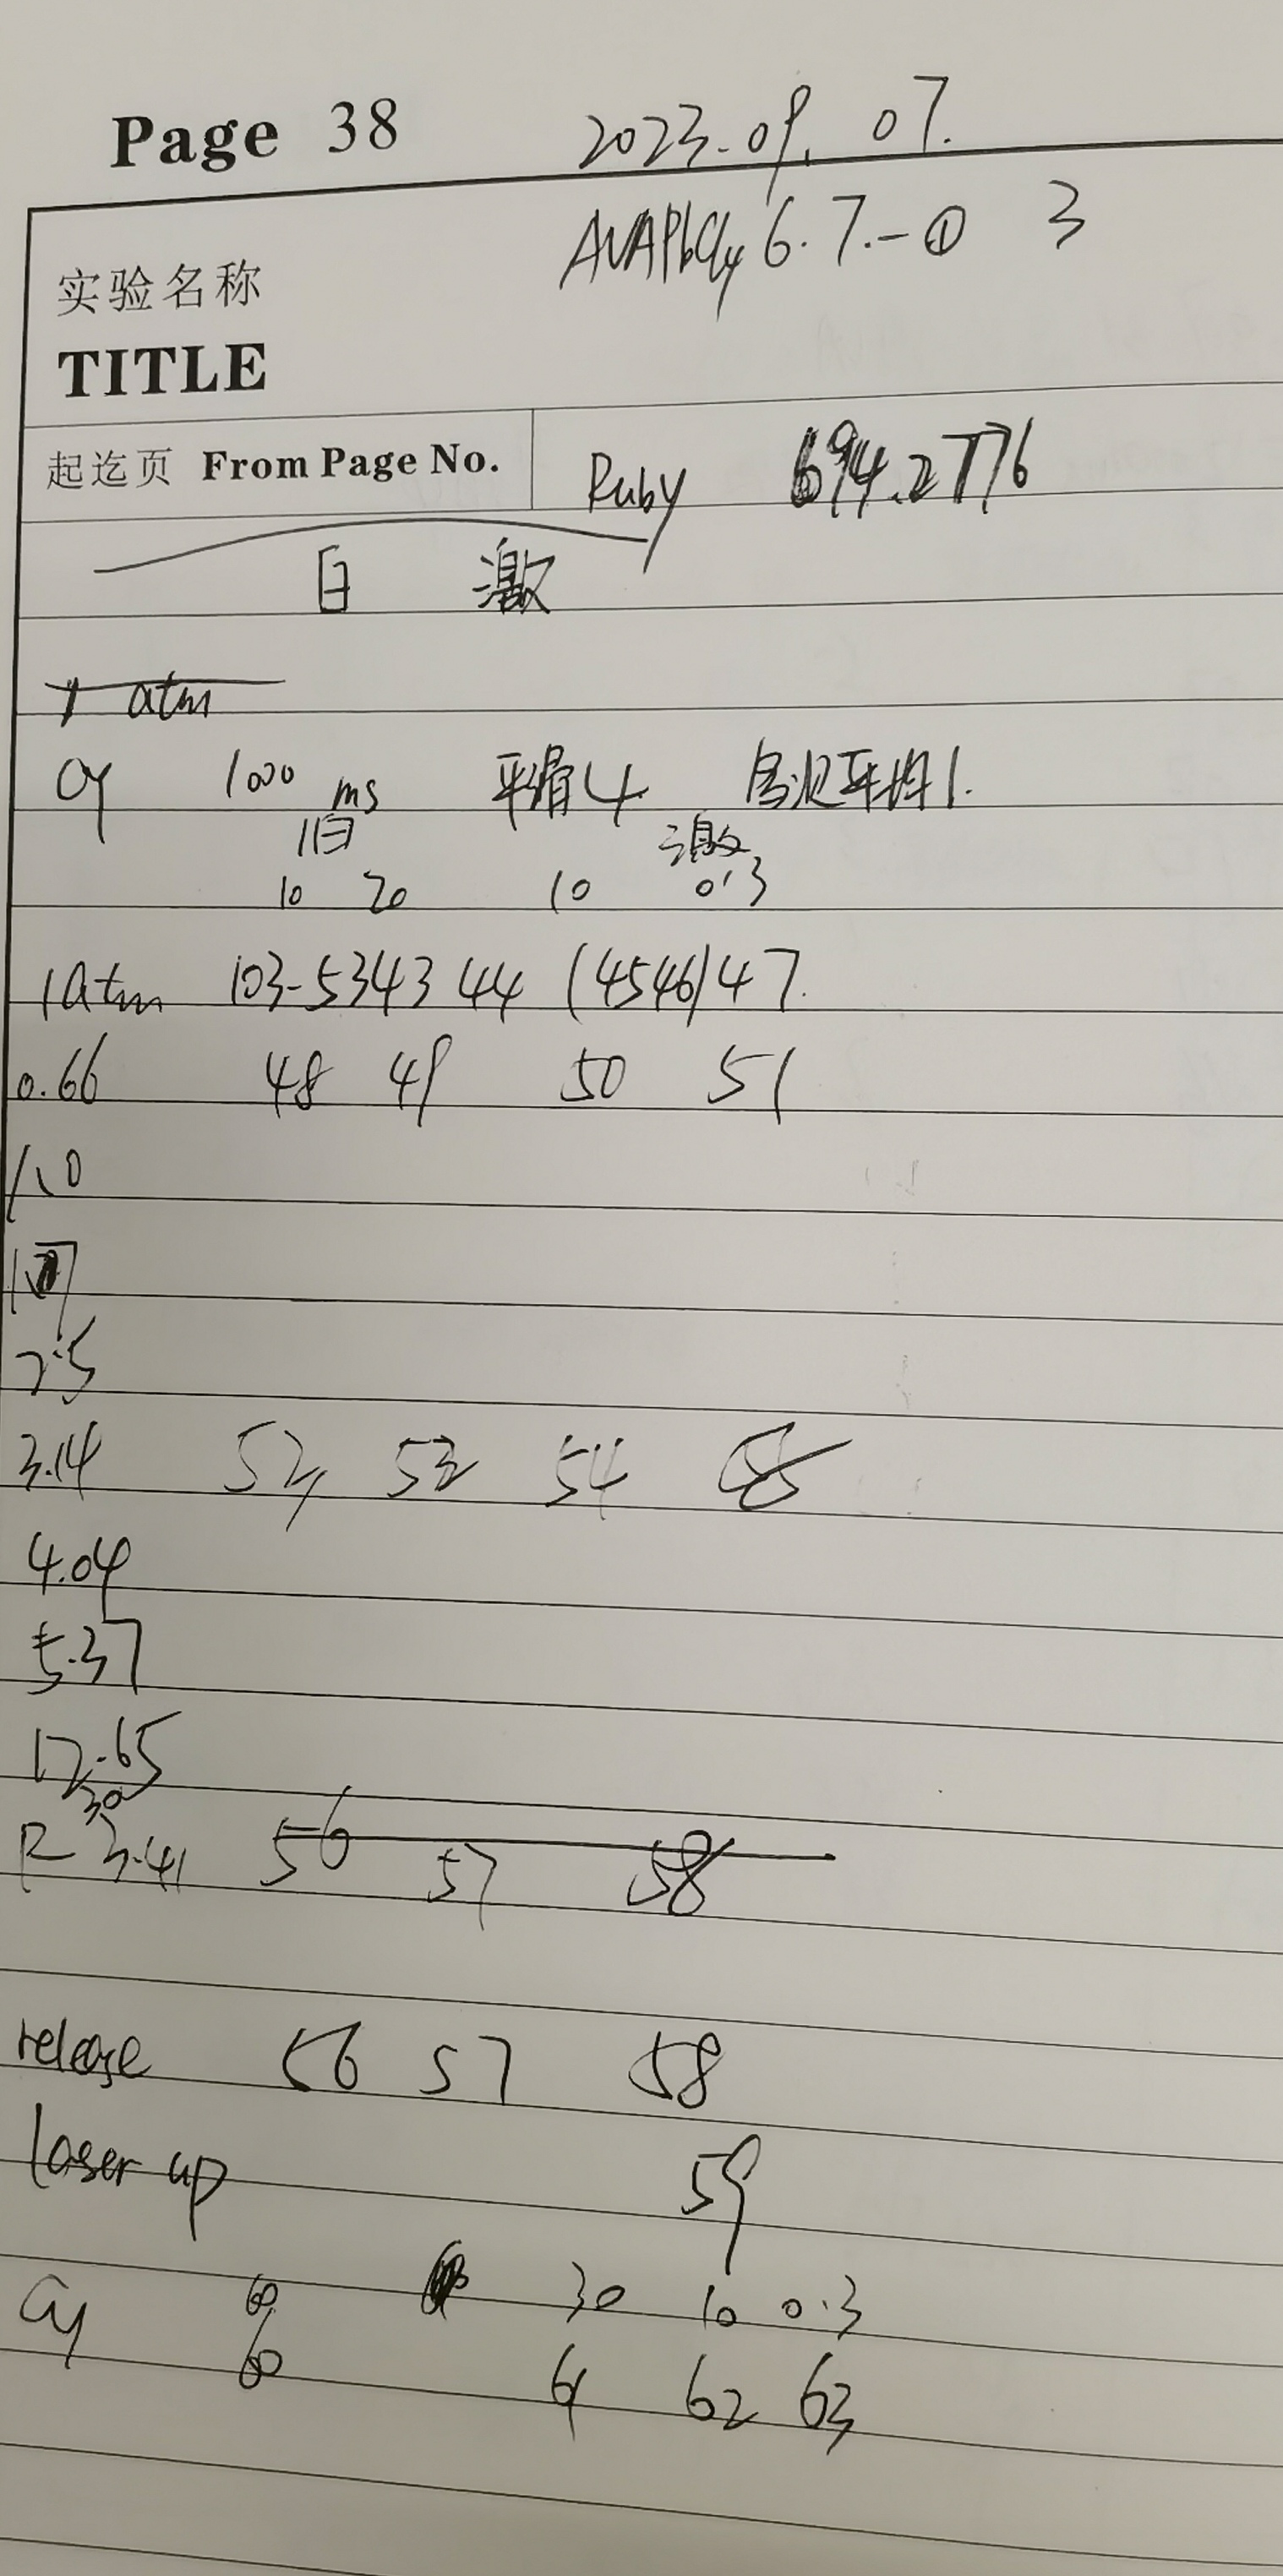 Page 38 2023.09.07.
AVAPbCly 6.7.-① 3
实验名称
TITLE
起迄页 From Page No. Ruby 694.2776
白 激
1 atm
Cy 1000 ms 平滑4 多次平均1.
白 激
10 20 10 0.3
1atm 103-5343 44 (4546)47.
0.66 48 49 50 51
1.0
2.5
3.14 52 53 54 55
4.04
5.37
12.65
30
R 3.41 56 57 58
release 56 57 58
laser up 59
Cy 60 30 10 0.3
60 61 62 63